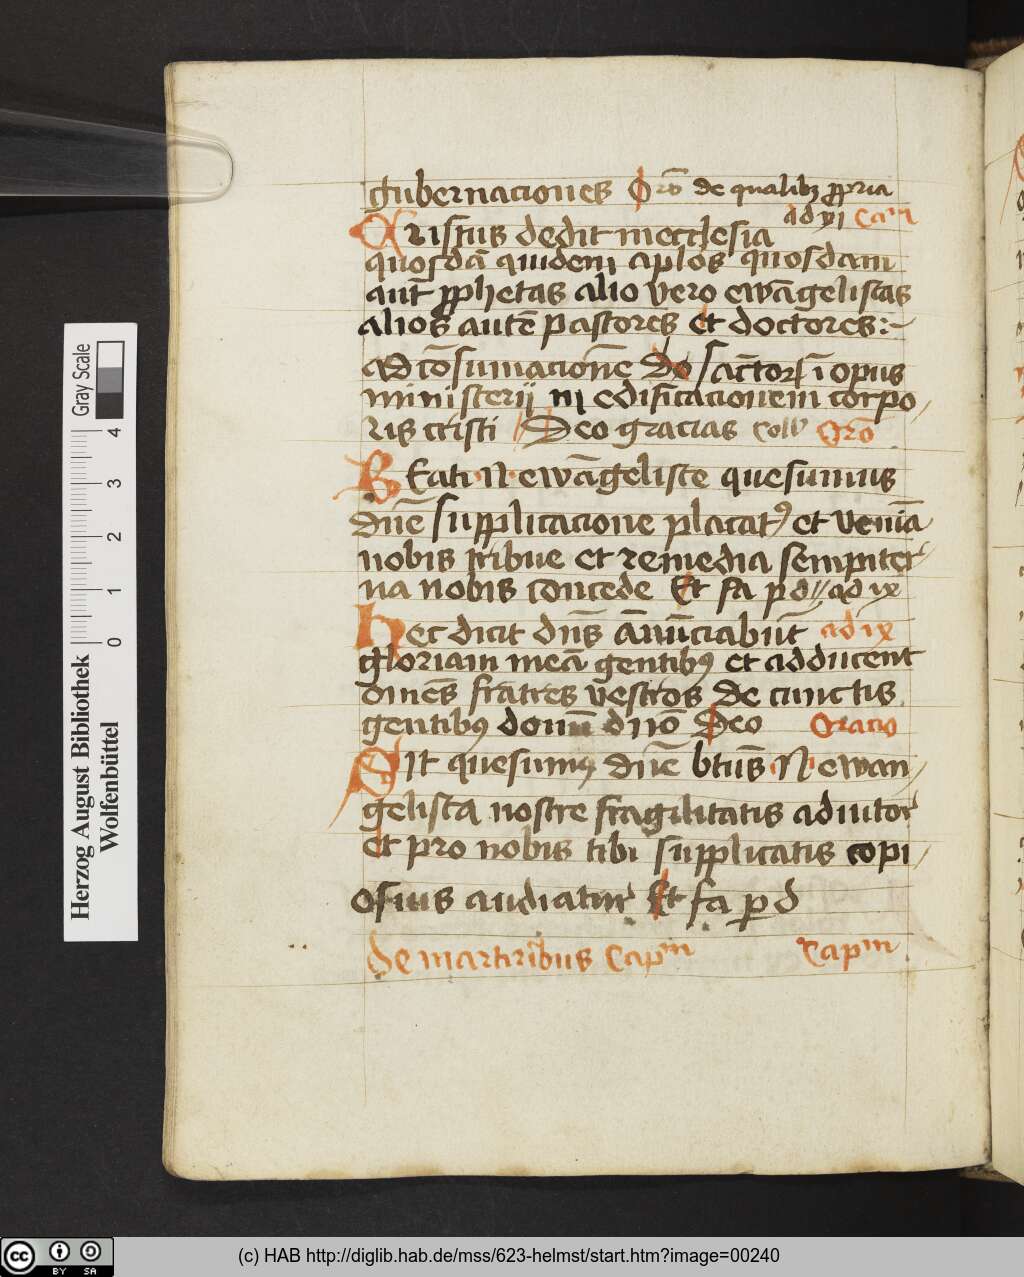 gubernaciones Oro᷑ de qualibꝫ ꝓpria
ad vi Ca᷑
Xristus dedit in ecclesia
quosdā quidem aplōs quosdam
aut̄ ꝓphetas alio vero ewāgelistas
alios autē pastores et doctores:-
Ad cōsumacionē do sāctorꝝ ī opus
ministerij in edificacionem corpo
ris cristi Deo gracias Coll Oro᷑
Beati·N·ewāgeliste quesumus
dn̄e supplicacione placatꝰ et veniā
nobis tribue et remedia sempiter
na nobis concede Et fa p d // ad ix
Hec dicit dn̄s Ān̄ūciabūt ad ix
gloriam meā gentibꝰ et adducent
om̄es fratres vestros de cunctis
gentibꝰ donū dn̄o Deo Oracio
Sit quesumꝰ dn̄e btūs·N·ewan
gelista nostre fragilitatis adiutor
et pro nobis tibi supplicatis copi
osius audiatur Et fa p d
de martiribus Capm
Capm
Herzog August Bibliothek
Wolfenbüttel
0 1 2 3 4
Gray Scale
cc BY SA
(c) HAB http://diglib.hab.de/mss/623-helmst/start.htm?image=00240